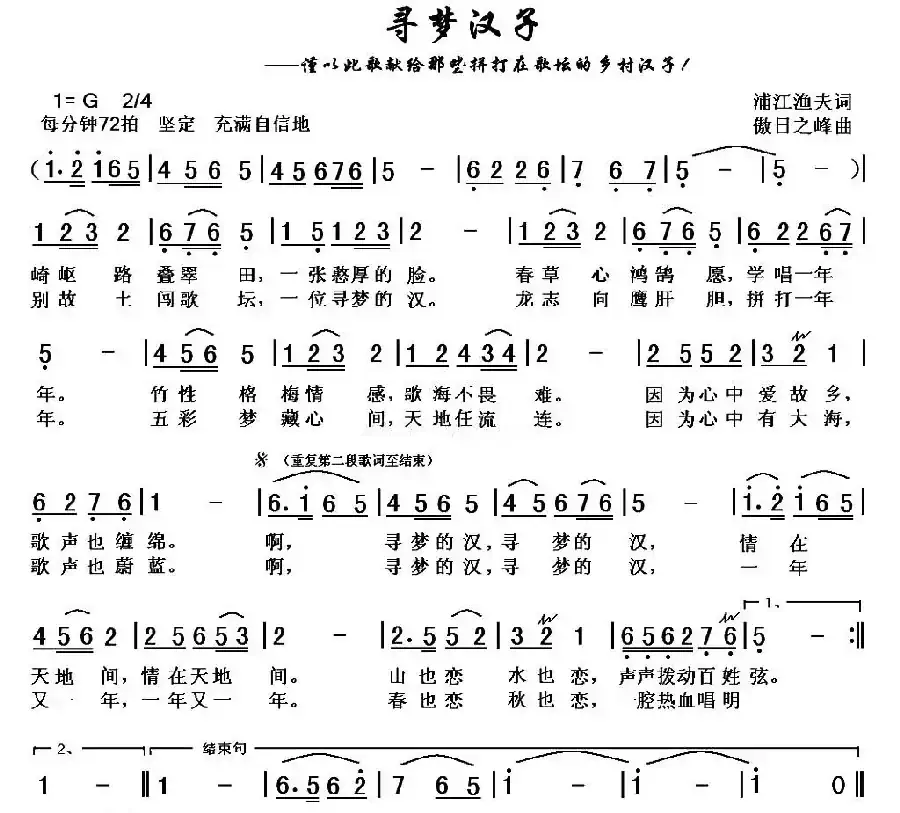 寻梦汉子
——谨以此歌献给那些拼打在歌坛的乡村汉子!
1=G 2/4
浦江渔夫词
每分钟72拍 坚定 充满自信地
傲日之峰曲
(1.2 165|456 5|45676|5 -|6226|7 67|5 -|5 -)|
123 2|676 5|15123|2 -|123 2|676 5|62267|
崎岖路叠翠田,一张憨厚的脸。 春草心鸿鹄愿,学唱一年
别故土闯歌坛,一位寻梦的汉。 龙志向鹰肝胆,拼打一年
5 -|456 5|123 2|12434|2 -|2552|32 1|
年。 竹性格梅情感,歌海不畏难。 因为心中爱故乡,
年。 五彩梦藏心间,天地任流连。 因为心中有大海,
𝄋 (重复第二段歌词至结束)
6276|1 -|6.1 65|4565|45676|5 -|1.2 165|
歌声也缠绵。 啊, 寻梦的汉,寻梦的汉, 情在
歌声也蔚蓝。 啊, 寻梦的汉,寻梦的汉, 一年
1、
456 2|25653|2 -|2.5 52|32 1|656276|5 -:||
天地间,情在天地间。 山也恋水也恋,声声拨动百姓弦。
又一年,一年又一年。 春也恋秋也恋, 腔热血唱明
2、 结束句
1 -||1 -|6.5 62|7 65|1 -|1 -|1 0||